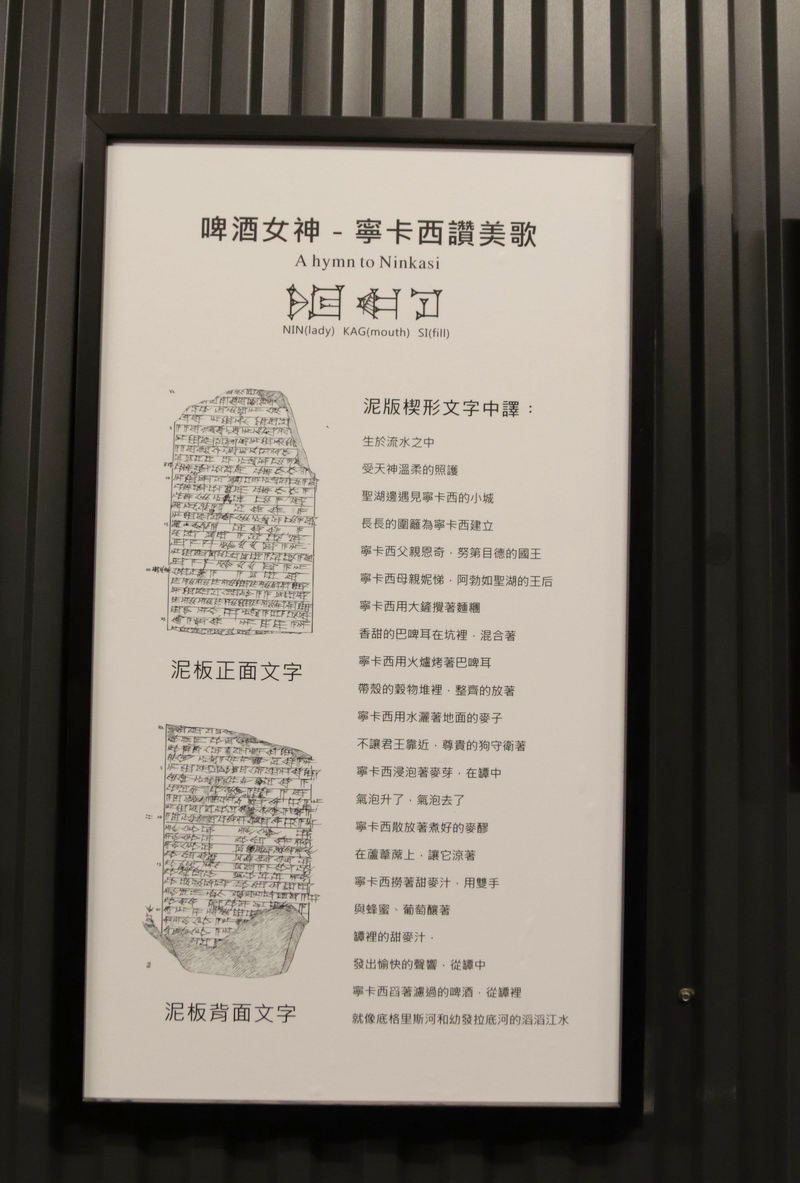 啤酒女神 - 寧卡西讚美歌
A hymn to Ninkasi
NIN(lady) KAG(mouth) SI(fill)
泥版楔形文字中譯：
生於流水之中
受天神溫柔的照護
聖湖邊遇見寧卡西的小城
長長的圍籬為寧卡西建立
寧卡西父親恩奇，努第目德的國王
寧卡西母親妮悌，阿勃如聖湖的王后
寧卡西用大鏟攪著麵糰
香甜的巴啤耳在坑裡，混合著
寧卡西用火爐烤著巴啤耳
帶殼的穀物堆裡，整齊的放著
寧卡西用水灑著地面的麥子
不讓君王靠近，尊貴的狗守衛著
寧卡西浸泡著麥芽，在罈中
氣泡升了，氣泡去了
寧卡西散放著煮好的麥醪
在蘆葦蓆上，讓它涼著
寧卡西撈著甜麥汁，用雙手
與蜂蜜、葡萄釀著
罈裡的甜麥汁，
發出愉快的聲響，從罈中
寧卡西舀著濾過的啤酒，從罈裡
就像底格里斯河和幼發拉底河的滔滔江水
泥板正面文字
泥板背面文字